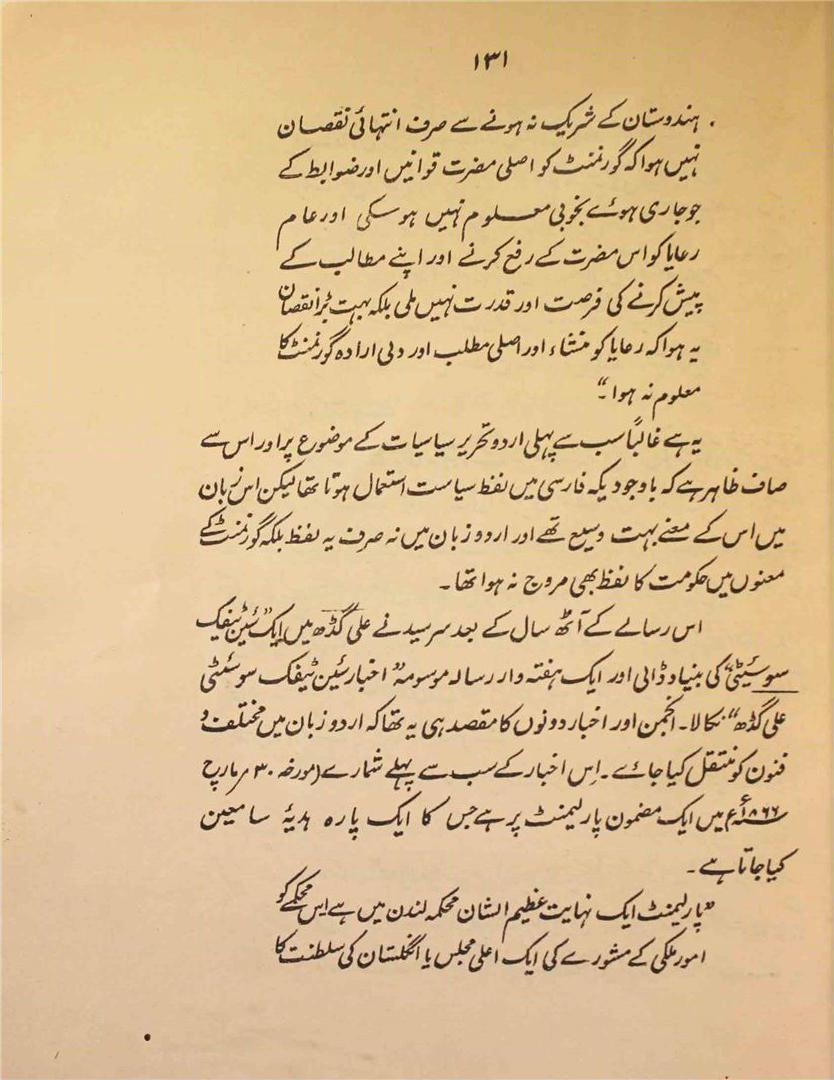 ۱۳۱
ہندوستان کے شریک نہ ہونے سے صرف انتہائی نقصان
نہیں ہوا کہ گورنمنٹ کو اصلی مضرت قوانیں اور ضوابط کے
جو جاری ہوئے بخوبی معلوم نہیں ہوسکی اور عام
رعایا کو اس مضرت کے رفع کرنے اور اپنے مطالب کے
پیش کرنے کی فرصت اور قدرت نہیں ملی بلکہ بہت بڑا نقصان
یہ ہوا کہ رعایا کو منشاء اور اصلی مطلب اور دلی ارادہ گورنمنٹ کا
معلوم نہ ہوا۔“
یہ ہے غالباً سب سے پہلی اردو تحریر سیاسیات کے موضوع پر اور اس سے
صاف ظاہر ہے کہ باوجودیکہ فارسی میں لفظ سیاست استعمال ہوتا تھا لیکن اس زبان
میں اس کے معنے بہت وسیع تھے اور اردو زبان میں نہ صرف یہ لفظ بلکہ گورنمنٹ کے
معنوں میں حکومت کا لفظ بھی مروج نہ ہوا تھا۔
اس رسالے کے آٹھ سال کے بعد سرسید نے علی گڈھ میں ایک ”سئین ٹیفک
سوسئیٹی“ کی بنیاد ڈالی اور ایک ہفتہ وار رسالہ موسومہ ”اخبار سئین ٹیفک سوسئٹی
علی گڈھ“ نکالا۔ انجمن اور اخبار دونوں کا مقصد ہی یہ تھا کہ اردو زبان میں مختلف
فنون کو منتقل کیا جائے۔ اِس اخبار کے سب سے پہلے شمارے (مورخہ ۳۰ مارچ
۱۸۶۶ء میں ایک مضمون پارلیمنٹ پر ہے جس کا ایک پارہ ہدیۂ سامعین
کیا جاتا ہے۔
”پارلیمنٹ ایک نہایت عظیم الشان محکمہ لندن میں ہے اس محکمے کو
امور ملکی کے مشورے کی ایک اعلی مجلس یا انگلستان کی سلطنت کا